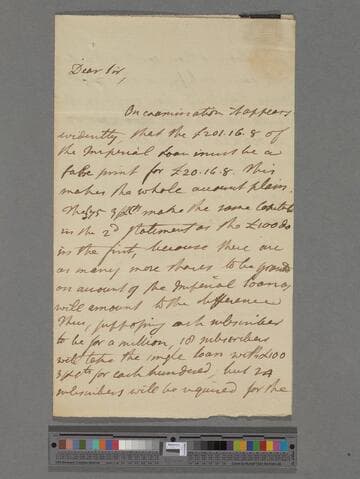 Dear Sir,
On examination it appears
evidently, that the £201.16.8 of
the Imperial Loan must be a
false print for £20.16.8. This
makes the whole account plain.
The 75 3 pCts make the same Capital
in the 2d Statement as the £100 do
in the first, because there are
as many more shares to be
on account of the Imperial loan, as
will amount to the difference
Thus, supposing each subscriber
to be for a million, 18 subscribers
will take the single loan with £100
3 pCts for each hundred, but 24
subscribers will be required for the